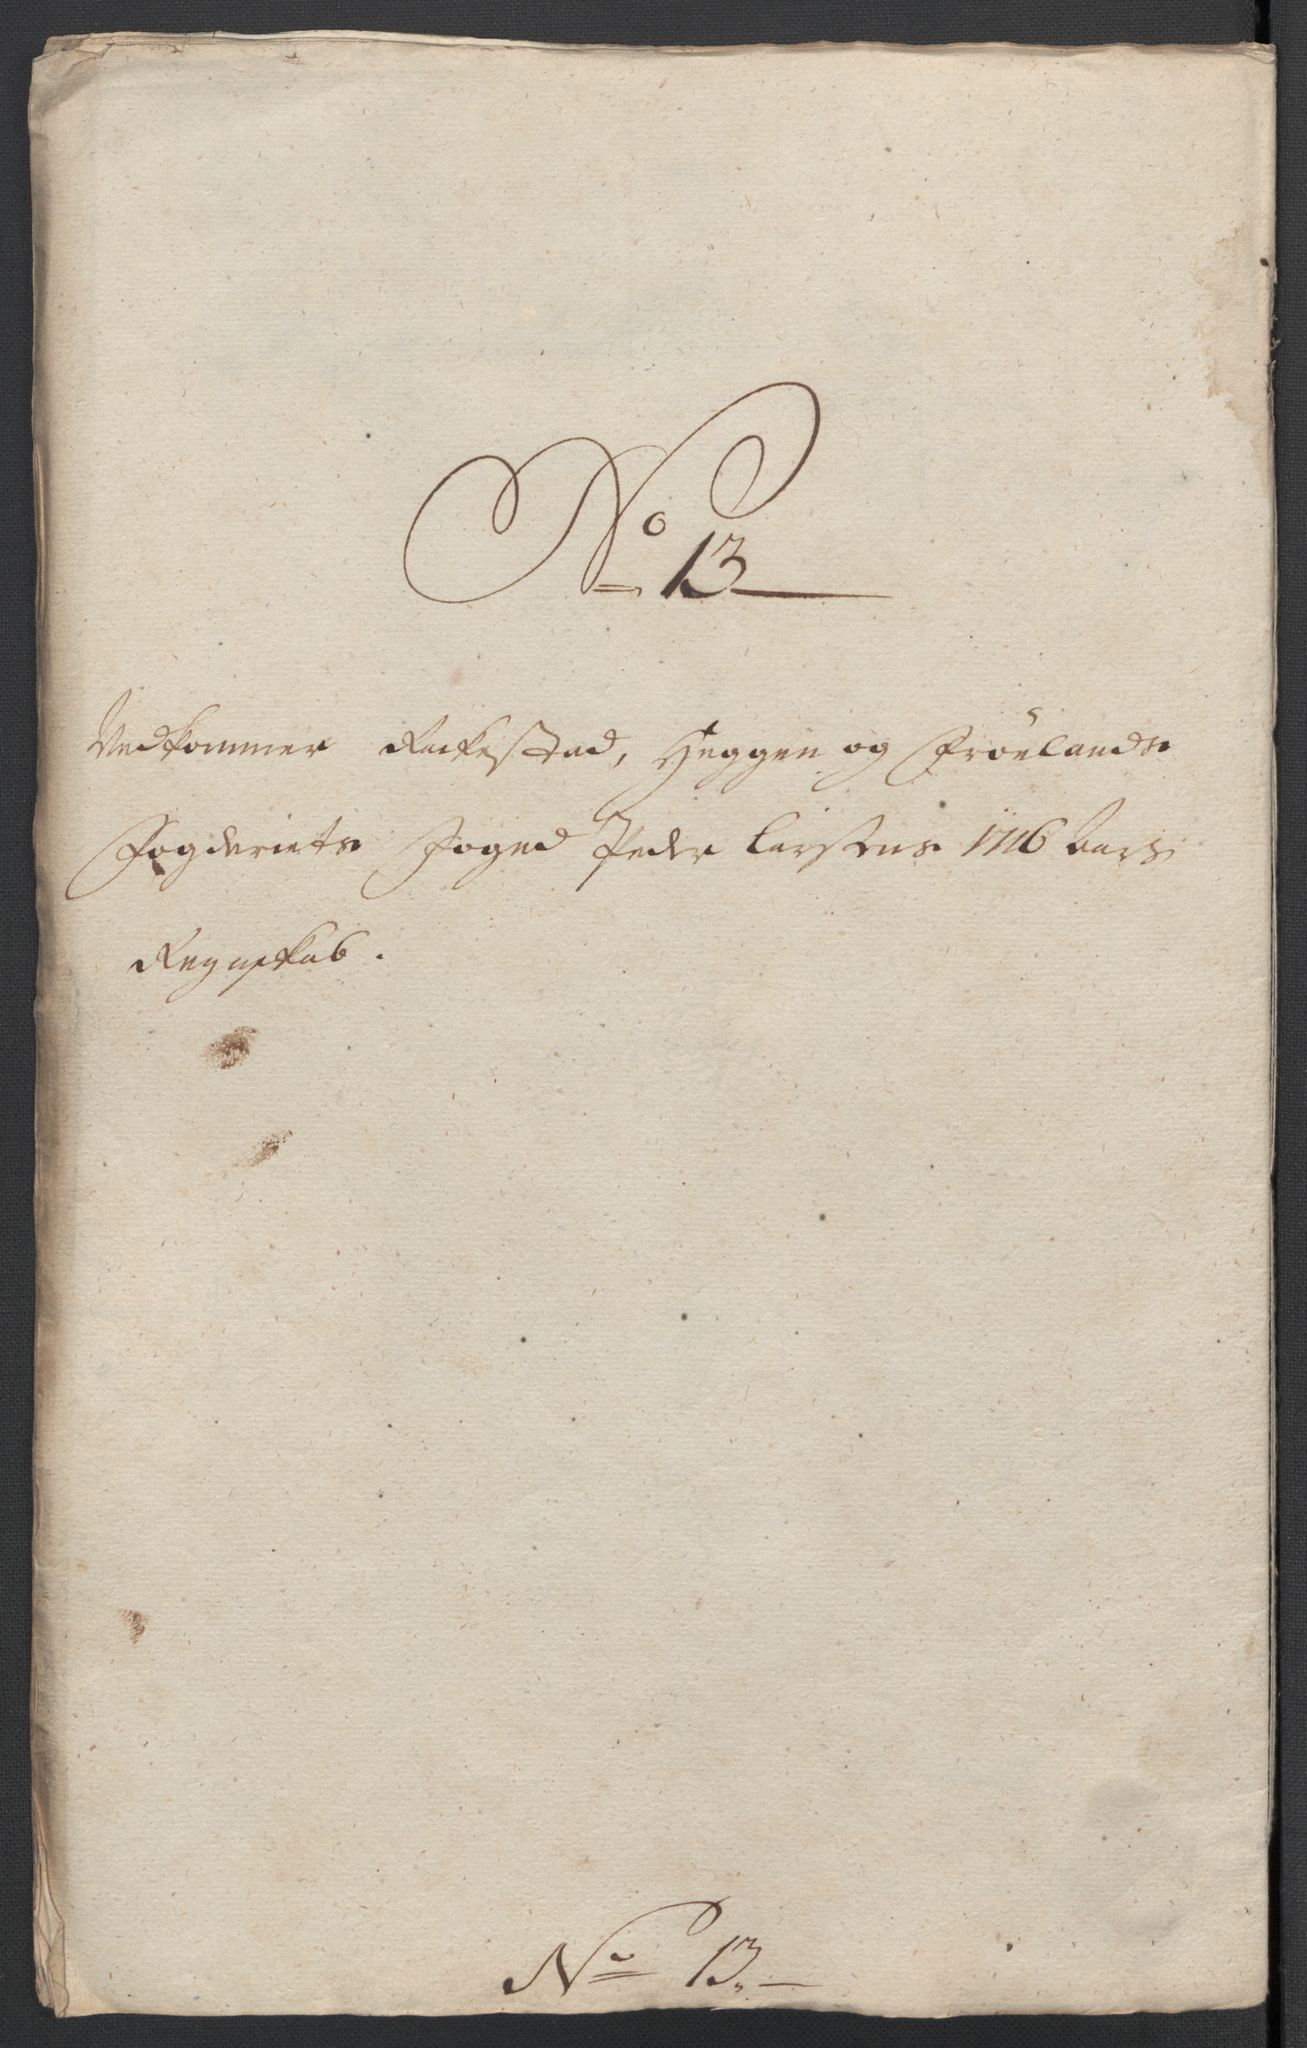 No 13
Vedkommer Rackestad, Heggen og Frölands
Fogderiets Foged Peder Larsens 1716 Aars
Regnskab.
No 13.